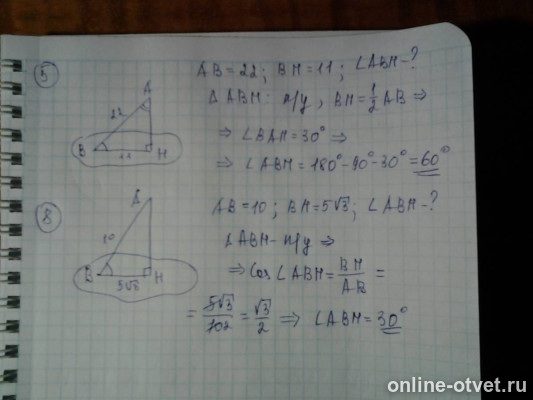 5
AB=22; BH=11; ∠ABH-?
A
22
B
11
H
Δ ABH: п/у, BH=1/2 AB ⇒
⇒ ∠BAH=30° ⇒
⇒ ∠ABH=180°-90°-30°=60°
8
AB=10; BH=5√3; ∠ABH-?
A
10
B
5√3
H
ΔABH-п/у ⇒
⇒ Cos∠ABH=BH/AB=
=5√3/102=√3/2 ⇒ ∠ABH=30°
online-otvet.ru